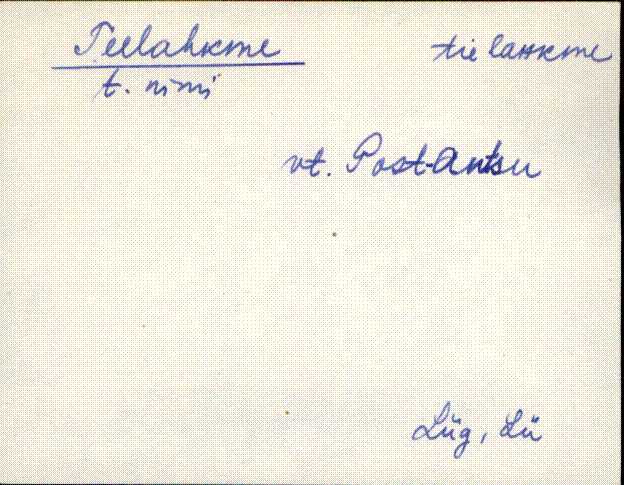 Teelahkme tie lahkme
t. nimi
vt. Post-Antsu
Lüg, Lü